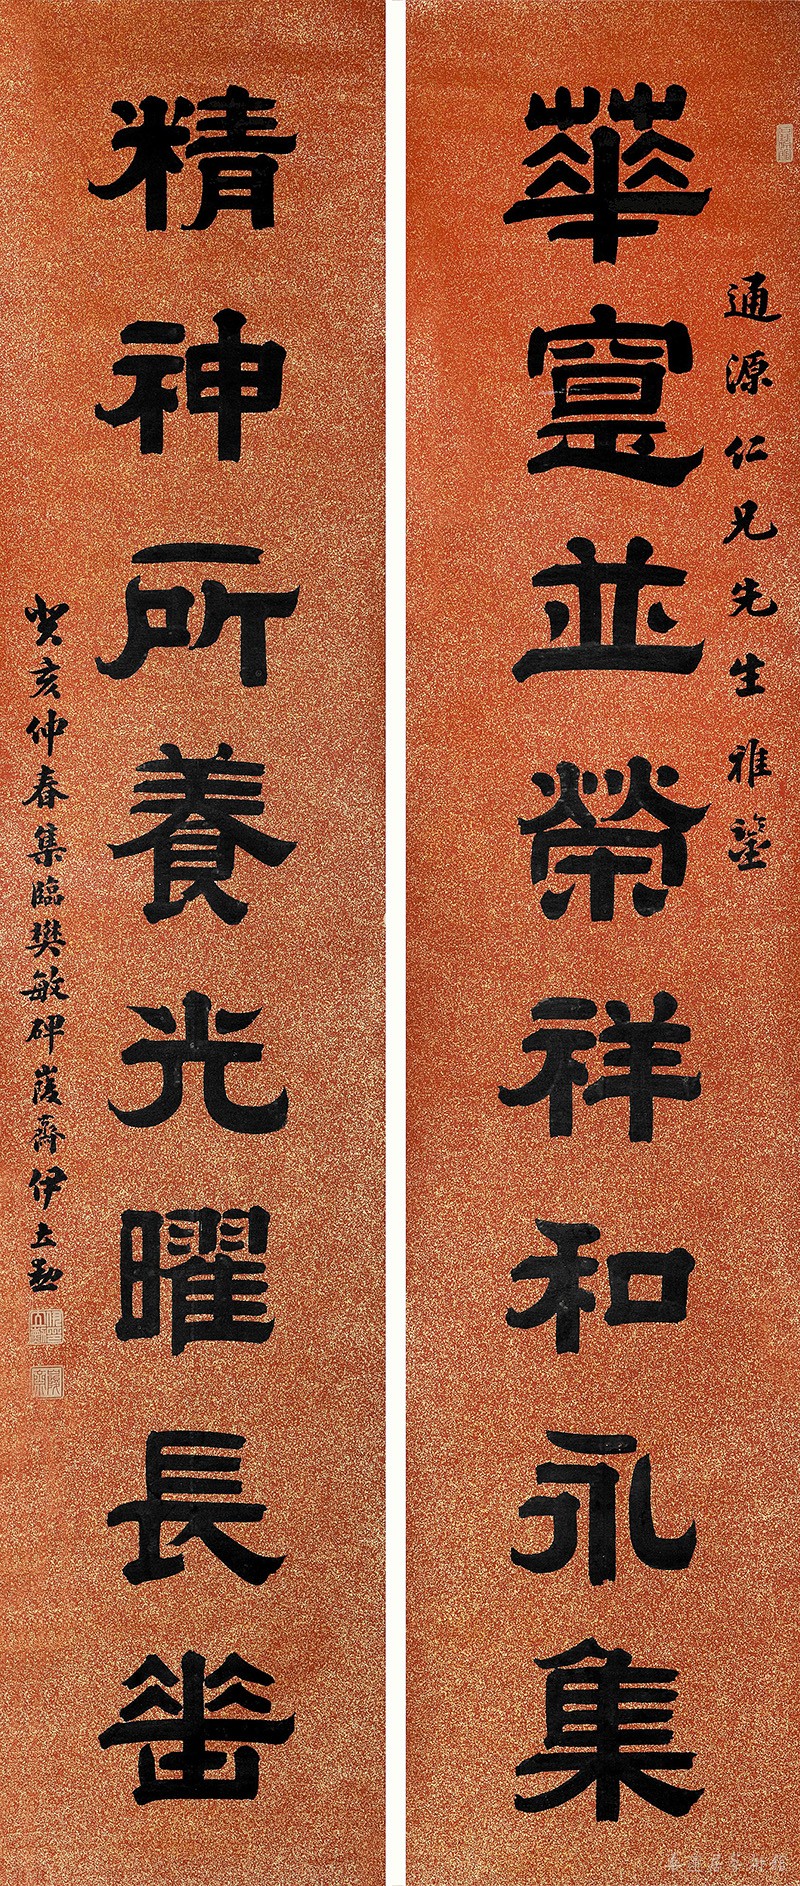 通源仁兄先生雅鑒
華寔並榮祥和永集
精神所養光曜長垂
癸亥仲春集臨樊敏碑峻齋伊立勳